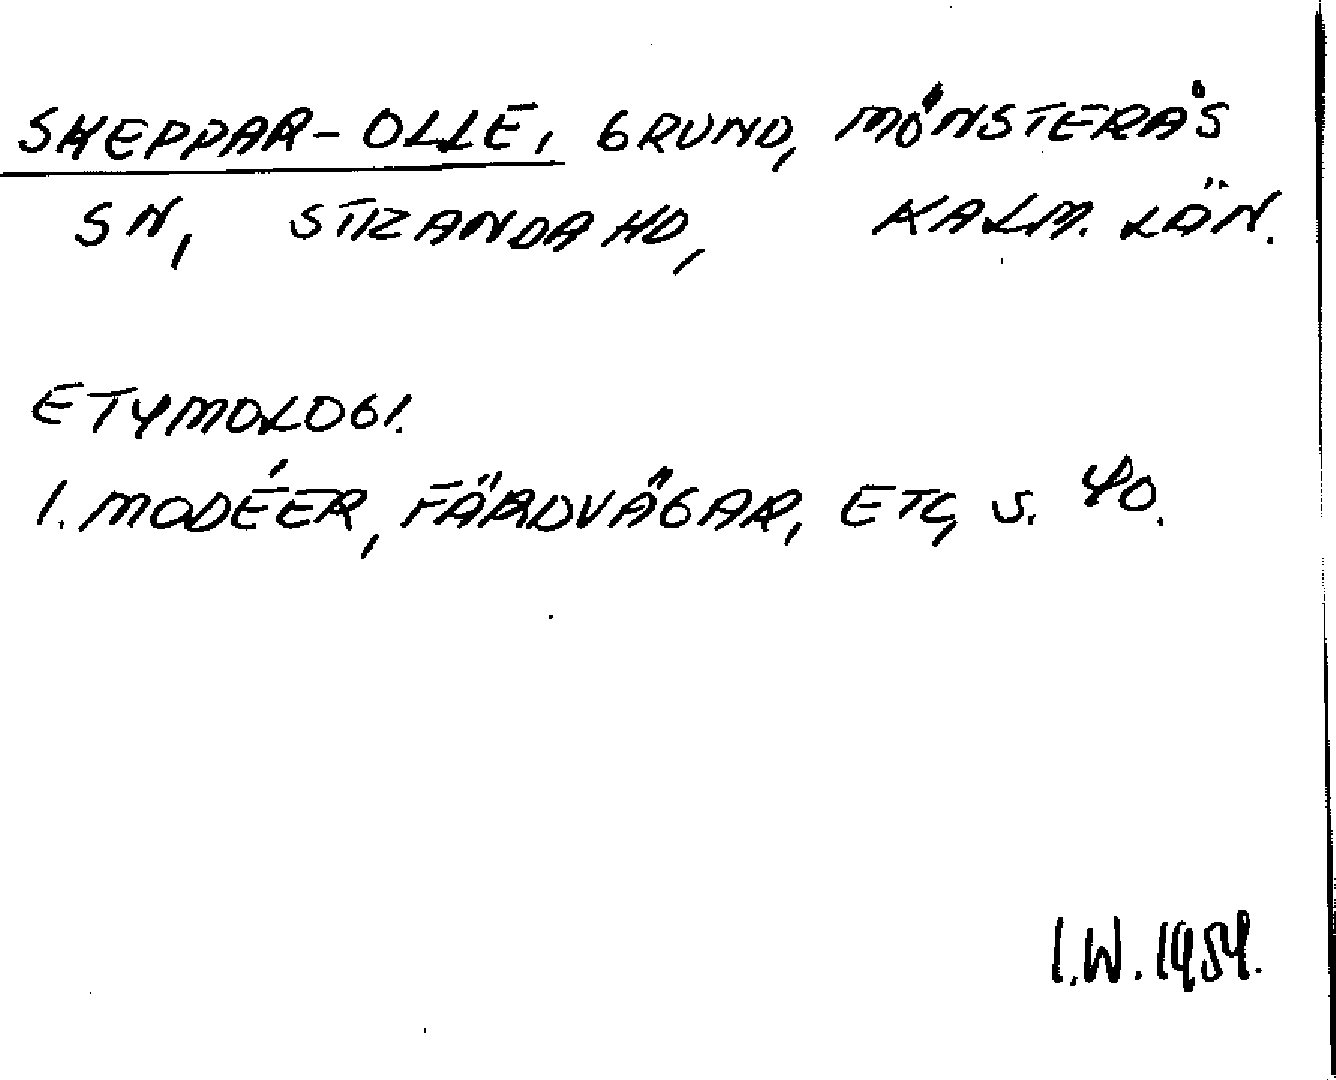 SKEPPAR-OLLE, GRUND, MÖNSTERÅS
SN, STRANDA HD, KALM. LÄN.
ETYMOLOGI.
I. MODÉER, FÄRDVÄGAR, ETC, S. 40.
I.W. 1954.